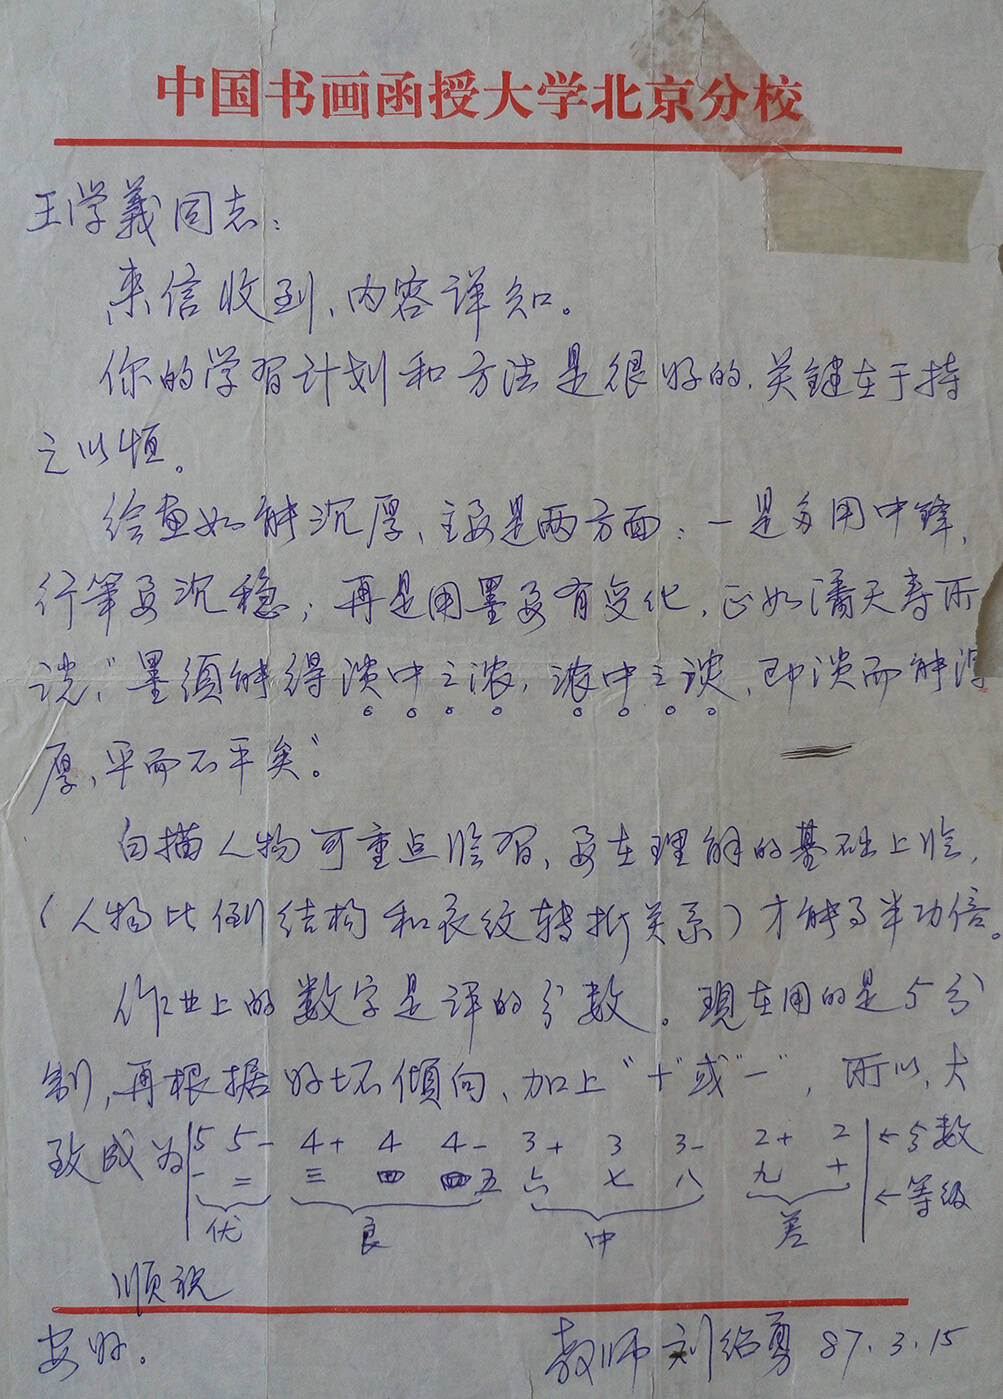 中国书画函授大学北京分校
王学義同志：
来信收到、内容详知。
你的学习计划和方法是很好的，关键在于持
之以恒。
绘画如能沉厚、主要是两方面：一是多用中锋，
行笔要沉稳；再是用墨要有变化，正如潘天寿所
说，“墨须能得淡中之浓，浓中之淡，即淡而能沉
厚、平而不平矣”。
白描人物可重点临习、要在理解的基础上临，
（人物比例结构和衣纹转折关系）才能事半功倍。
作业上的数字是评的分数。现在用的是5分
制，再根据好坏倾向、加上“+”或“-”，所以，大
致成为 5 5- 4+ 4 4- 3+ 3 3- 2+ 2 ←分数
一 二 三 四 五 六 七 八 九 十 ←等级
优 良 中 差
顺祝
安好。 教师 刘绍勇 87.3.15